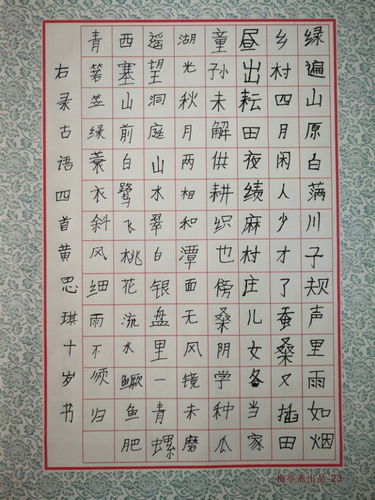 绿遍山原白满川子规声里雨如烟
乡村四月闲人少才了蚕桑又插田
昼出耘田夜绩麻村庄儿女各当家
童孙未解供耕织也傍桑阴学种瓜
湖光秋月两相和潭面无风镜未磨
遥望洞庭山水翠白银盘里一青螺
西塞山前白鹭飞桃花流水鳜鱼肥
青箬笠绿蓑衣斜风细雨不须归
右录古语四首黄思琪十岁书
出品-23